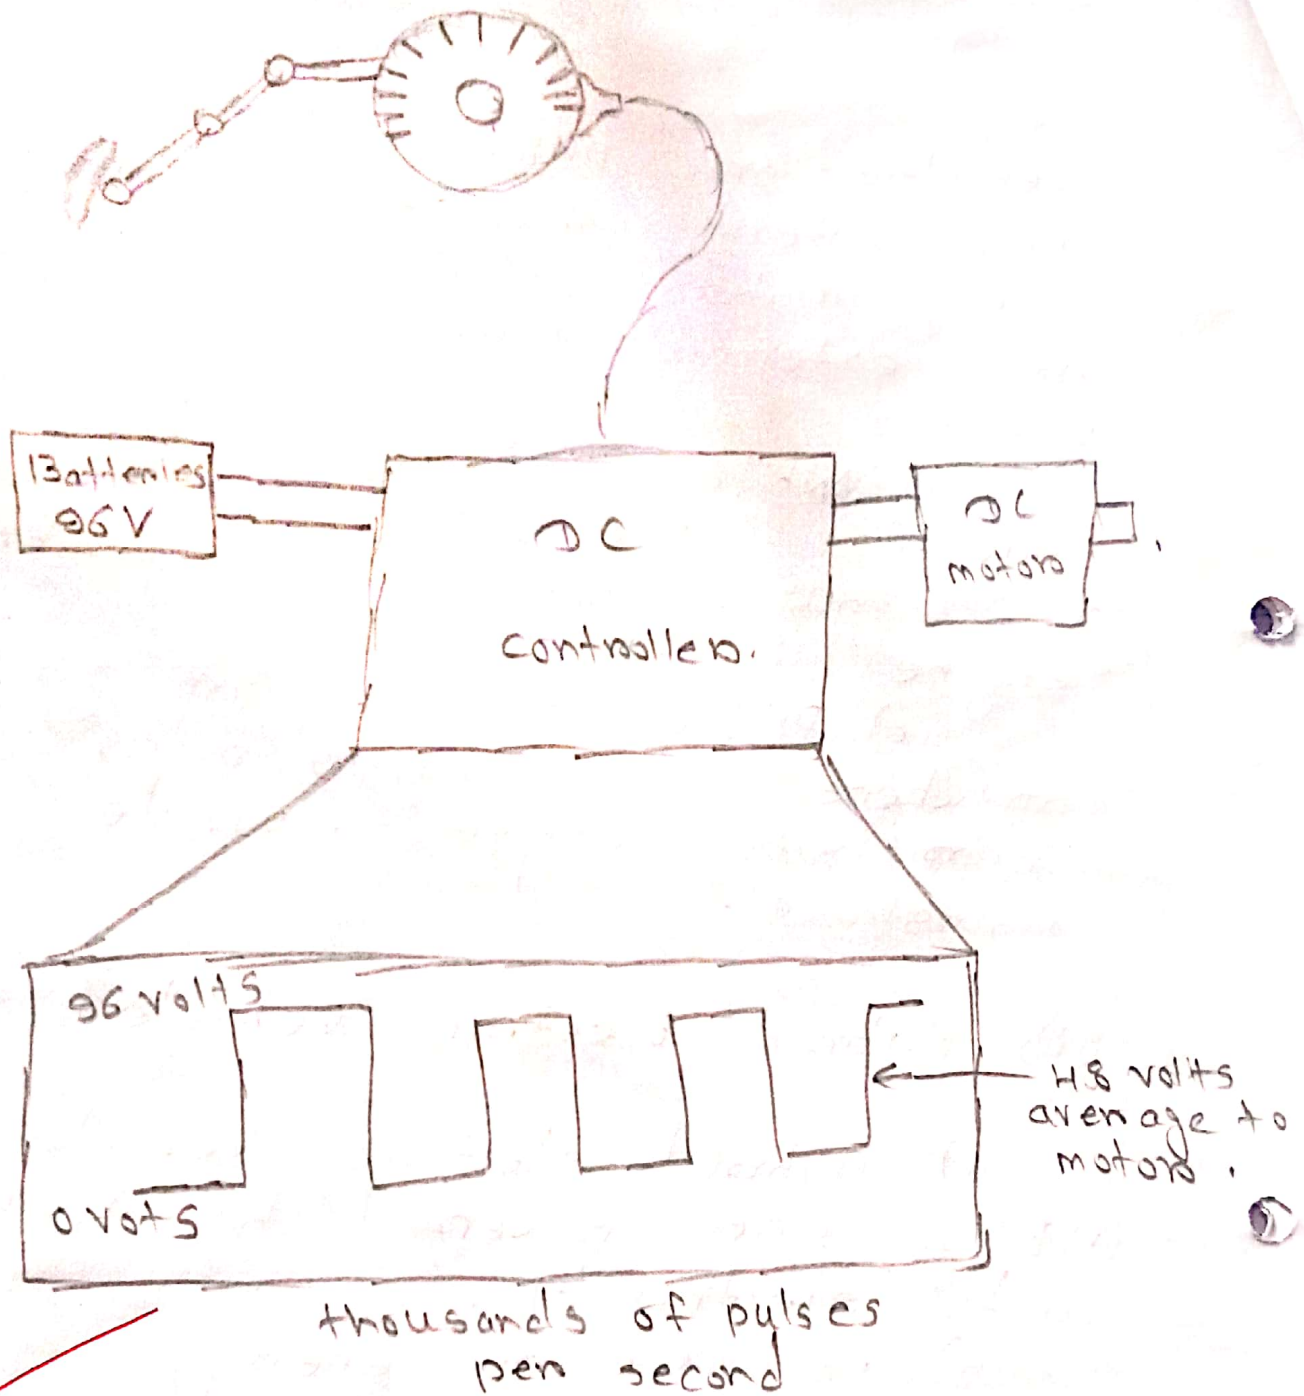 Batteries
96 V
DC
controller.
DC
motor
96 volts
0 vots
48 volts
average to
motor.
thousands of pulses
per second